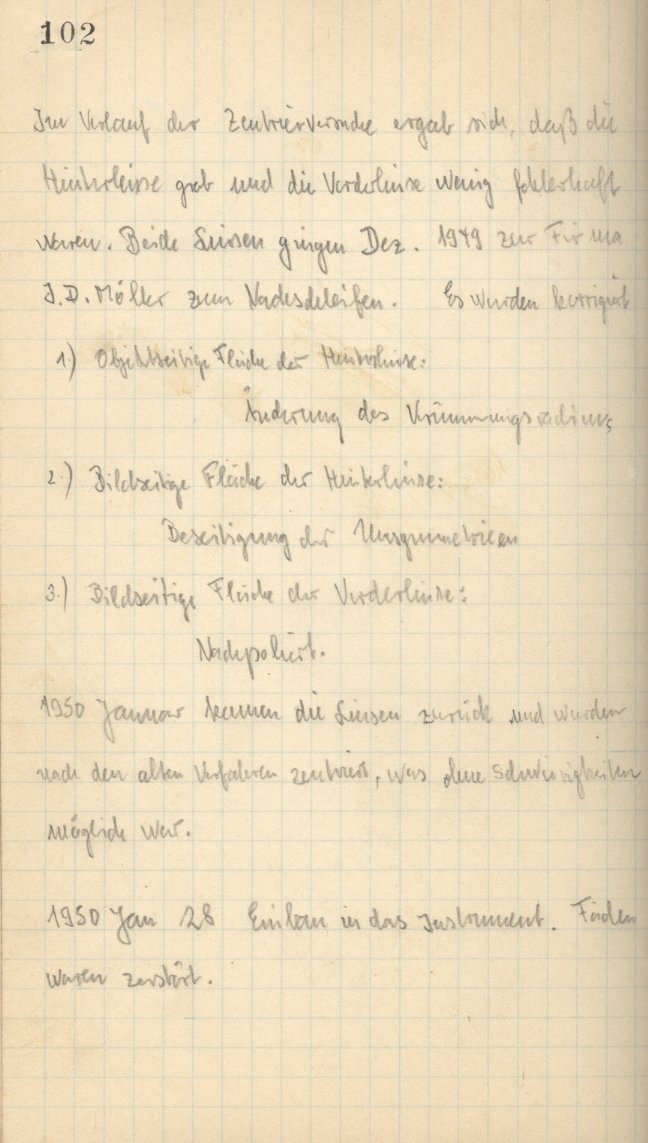 102
Im Verlauf der Zentrierversuche ergab sich, daß die
Hinterlinse grob und die Vorderlinse wenig fehlerhaft
waren. Beide Linsen gingen Dez. 1949 zur Firma
J.D. Möller zum Nachschleifen. Es wurden korrigiert
1.) Objektseitige Fläche der Hinterlinse:
Änderung des Krümmungsradius
2.) Bildseitige Fläche der Hinterlinse:
Beseitigung der Unsymmetrieen
3.) Bildseitige Fläche der Vorderlinse:
Nachpoliert.
1950 Januar kamen die Linsen zurück und wurden
nach den alten Verfahren zentriert, was ohne Schwierigkeiten
möglich war.
1950 Jan 28 Einbau in das Instrument. Fäden
waren zerstört.